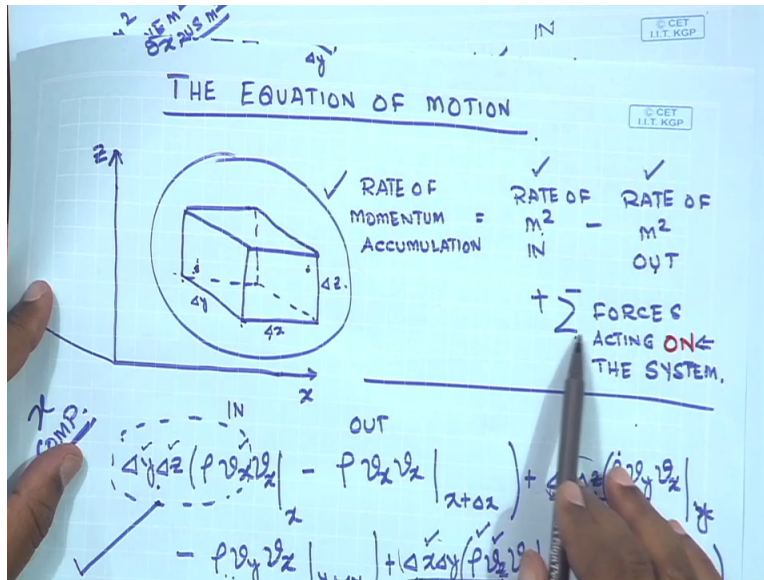 IN
© CET
I.I.T. KGP
Δy
THE EQUATION OF MOTION
© CET
I.I.T. KGP
z
RATE OF MOMENTUM ACCUMULATION = RATE OF m² IN - RATE OF m² OUT
+ Σ FORCES
ACTING ON ⇐
THE SYSTEM.
Δz.
Δy
Δx
x
x COMP.
IN
OUT
ΔyΔz(ρvₓvₓ|ₓ - ρvₓvₓ|ₓ₊Δₓ) +
- ρv_y vₓ| + (ΔxΔy(ρv_z